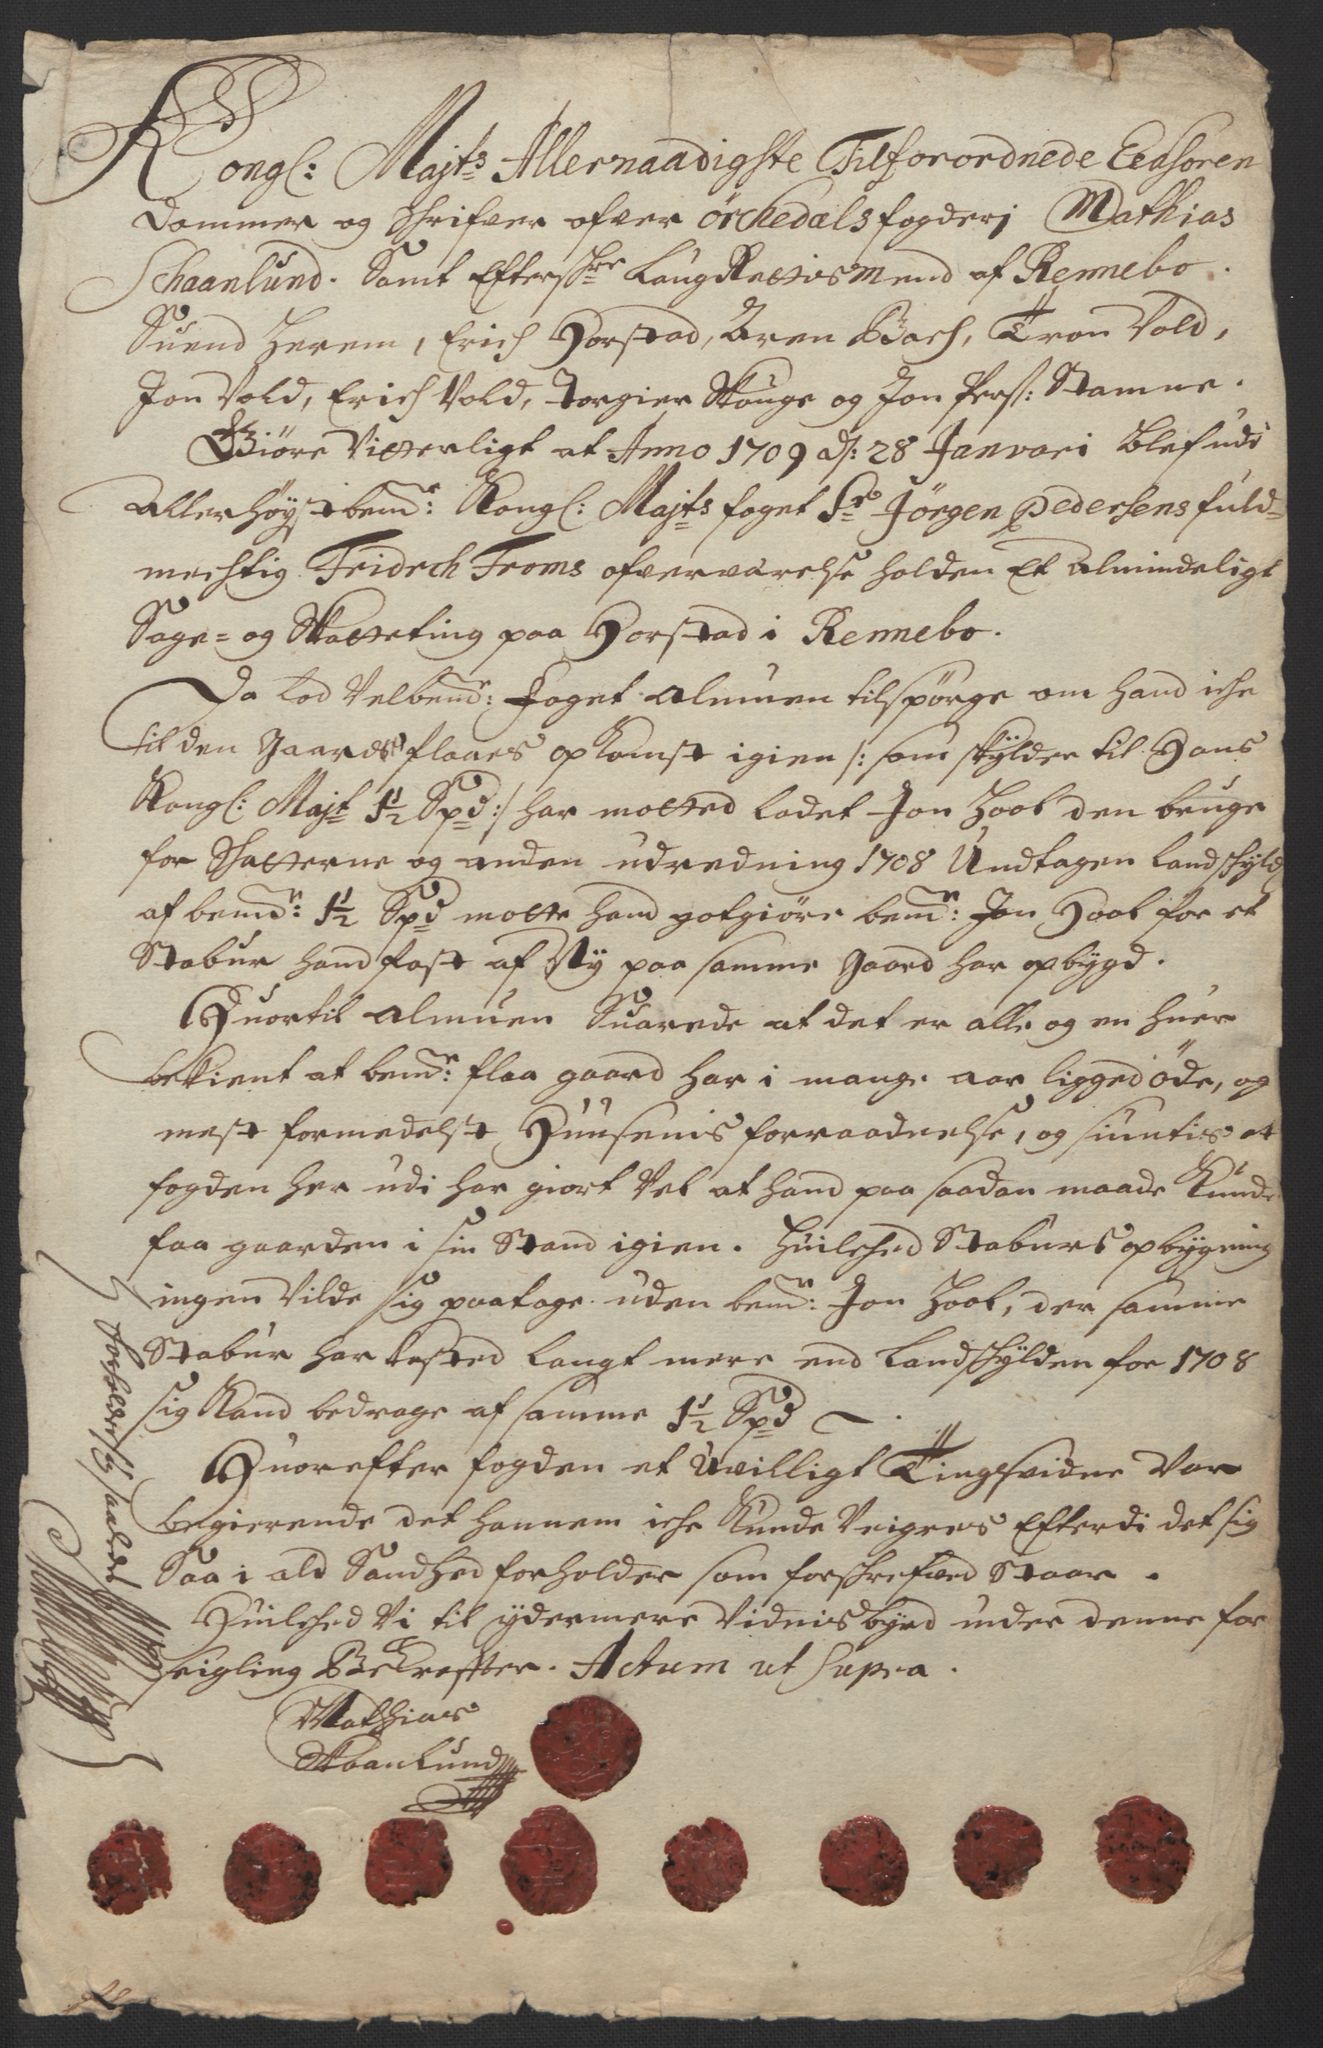 Kongl: Majts Allernaadigste Tilforordnede Eedsoren
Dommer og Schrifver ofver Örckedals fogderj Mathias
Schaanlund. Samt Eftersche Laug Rettismend af Rennebo.
Suend Herem, Erich Horstad, Aren Bach, Tron Vold,
Jon Vold, Erich Vold, Torgier Skouge og Jon Pers: Stamne.
Giöre Vitterligt at Anno 1709 d: 28 Januari blef udi
allerhöystbemte: Kongl: Majts foget Sr Jörgen Pedersens fuld-
mechtig Fridrch Froms ofververelse holden Et almindeligt
Sage- og Skatteting paa Horstad i Rennebo.
Da lod Velbemte: Foget almuen tilspörge om hand iche
til den Gaards flaaes opkomst igien /: som skylder til Hans
Kongl: Majt 1½ Spd :/ har motted ladet Jon Hool den bruge
for Skatterne og anden udredning 1708 Undtagen Landschyld
af bemte: 1½ Spd motte hand gotgiöre bemte: Jon Hool for et
Stabur hand fast af Ny paa samme Gaard har opbygd.
Huortil almuen Suarede at det er alle og en huer
bekient at bemte: flaa gaard har i mange aar ligged öde, og
mest formedelst Huusenis forraadnelse, og siuntis at
fogden her udi har giort Vel at hand paa saadan maade Kunde
faa gaarden i sin Stand igien. Huilched Staburs opbygning
ingen Vilde sig paatage uden bemte: Jon Hool, der samme
Stabur har kosted langt mere end Landschylden for 1708
sig Kand bedrage af samme 1½ Spd
Huorefter fogden et Uvilligt Tingsvidne Var
begierende det hannem iche Kunde Veigres Efterdi det sig
Saa i ald Sandhed forholder som forschrefved Staar.
Huilched Vi til ydermere Vidnisbyrd under denne for
seigling Bekrefter. Actum ut Supra.
Mathias
Skaanlund
forholder sig saaledes